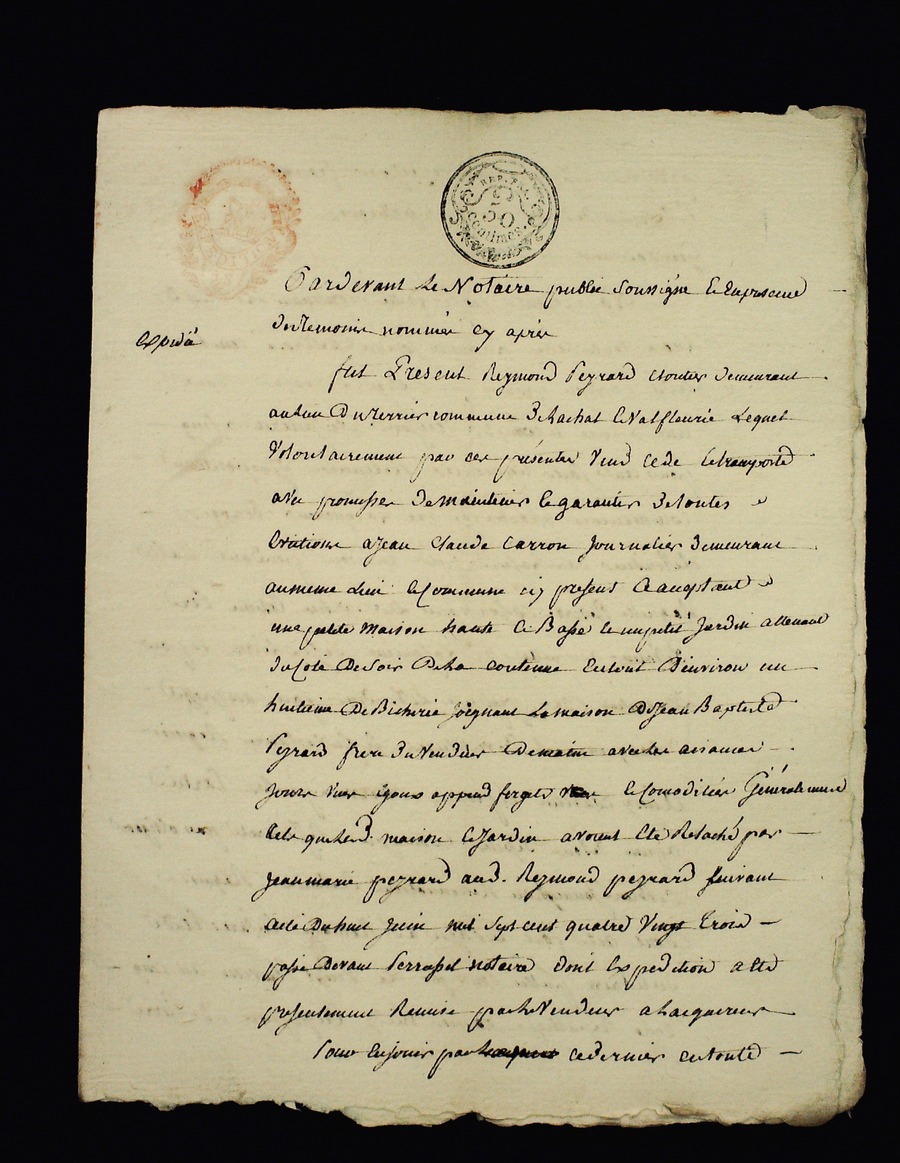 REP. FRA.
50
Centimes.
Pardevant Le Notaire public Soussigné et En presence
Des temoins nommés cy après
expédié
fut Present Reymond Peyrard cloutier demeurant
au lieu Du terrier commune De Lachal et Valfleurie Lequel
Volontairement par ces presentes Vend cede et transporte
avec promesse De maintenir et garantir De toutes
Evictions a Jean Claude Carron Journalier Demeurant
au meme Lieu et Commune icy present et acceptant
une petite maison haute et Basse et un petit Jardin attenant
Du Coté De Soir De la contenue En tout D'environ un
huitieme De Bicherée Joignant La maison De Jean Baptiste
Peyrard frere Du Vendeur De matin avec les aisances
Jours Vues Egoux append et Comodités Généralement
tels que lesd. maison et Jardin avoient Eté Relaché par
Jean marie peyrard aud. Reymond peyrard Suivant
acte Du huit Juin mil Sept cent quatre Vingt Trois
passé Devant Perrossel notaire dont Expedition a Eté
presentement Remise par le Vendeur a L'acquereur
Pour En Jouir par ce dernier en toute